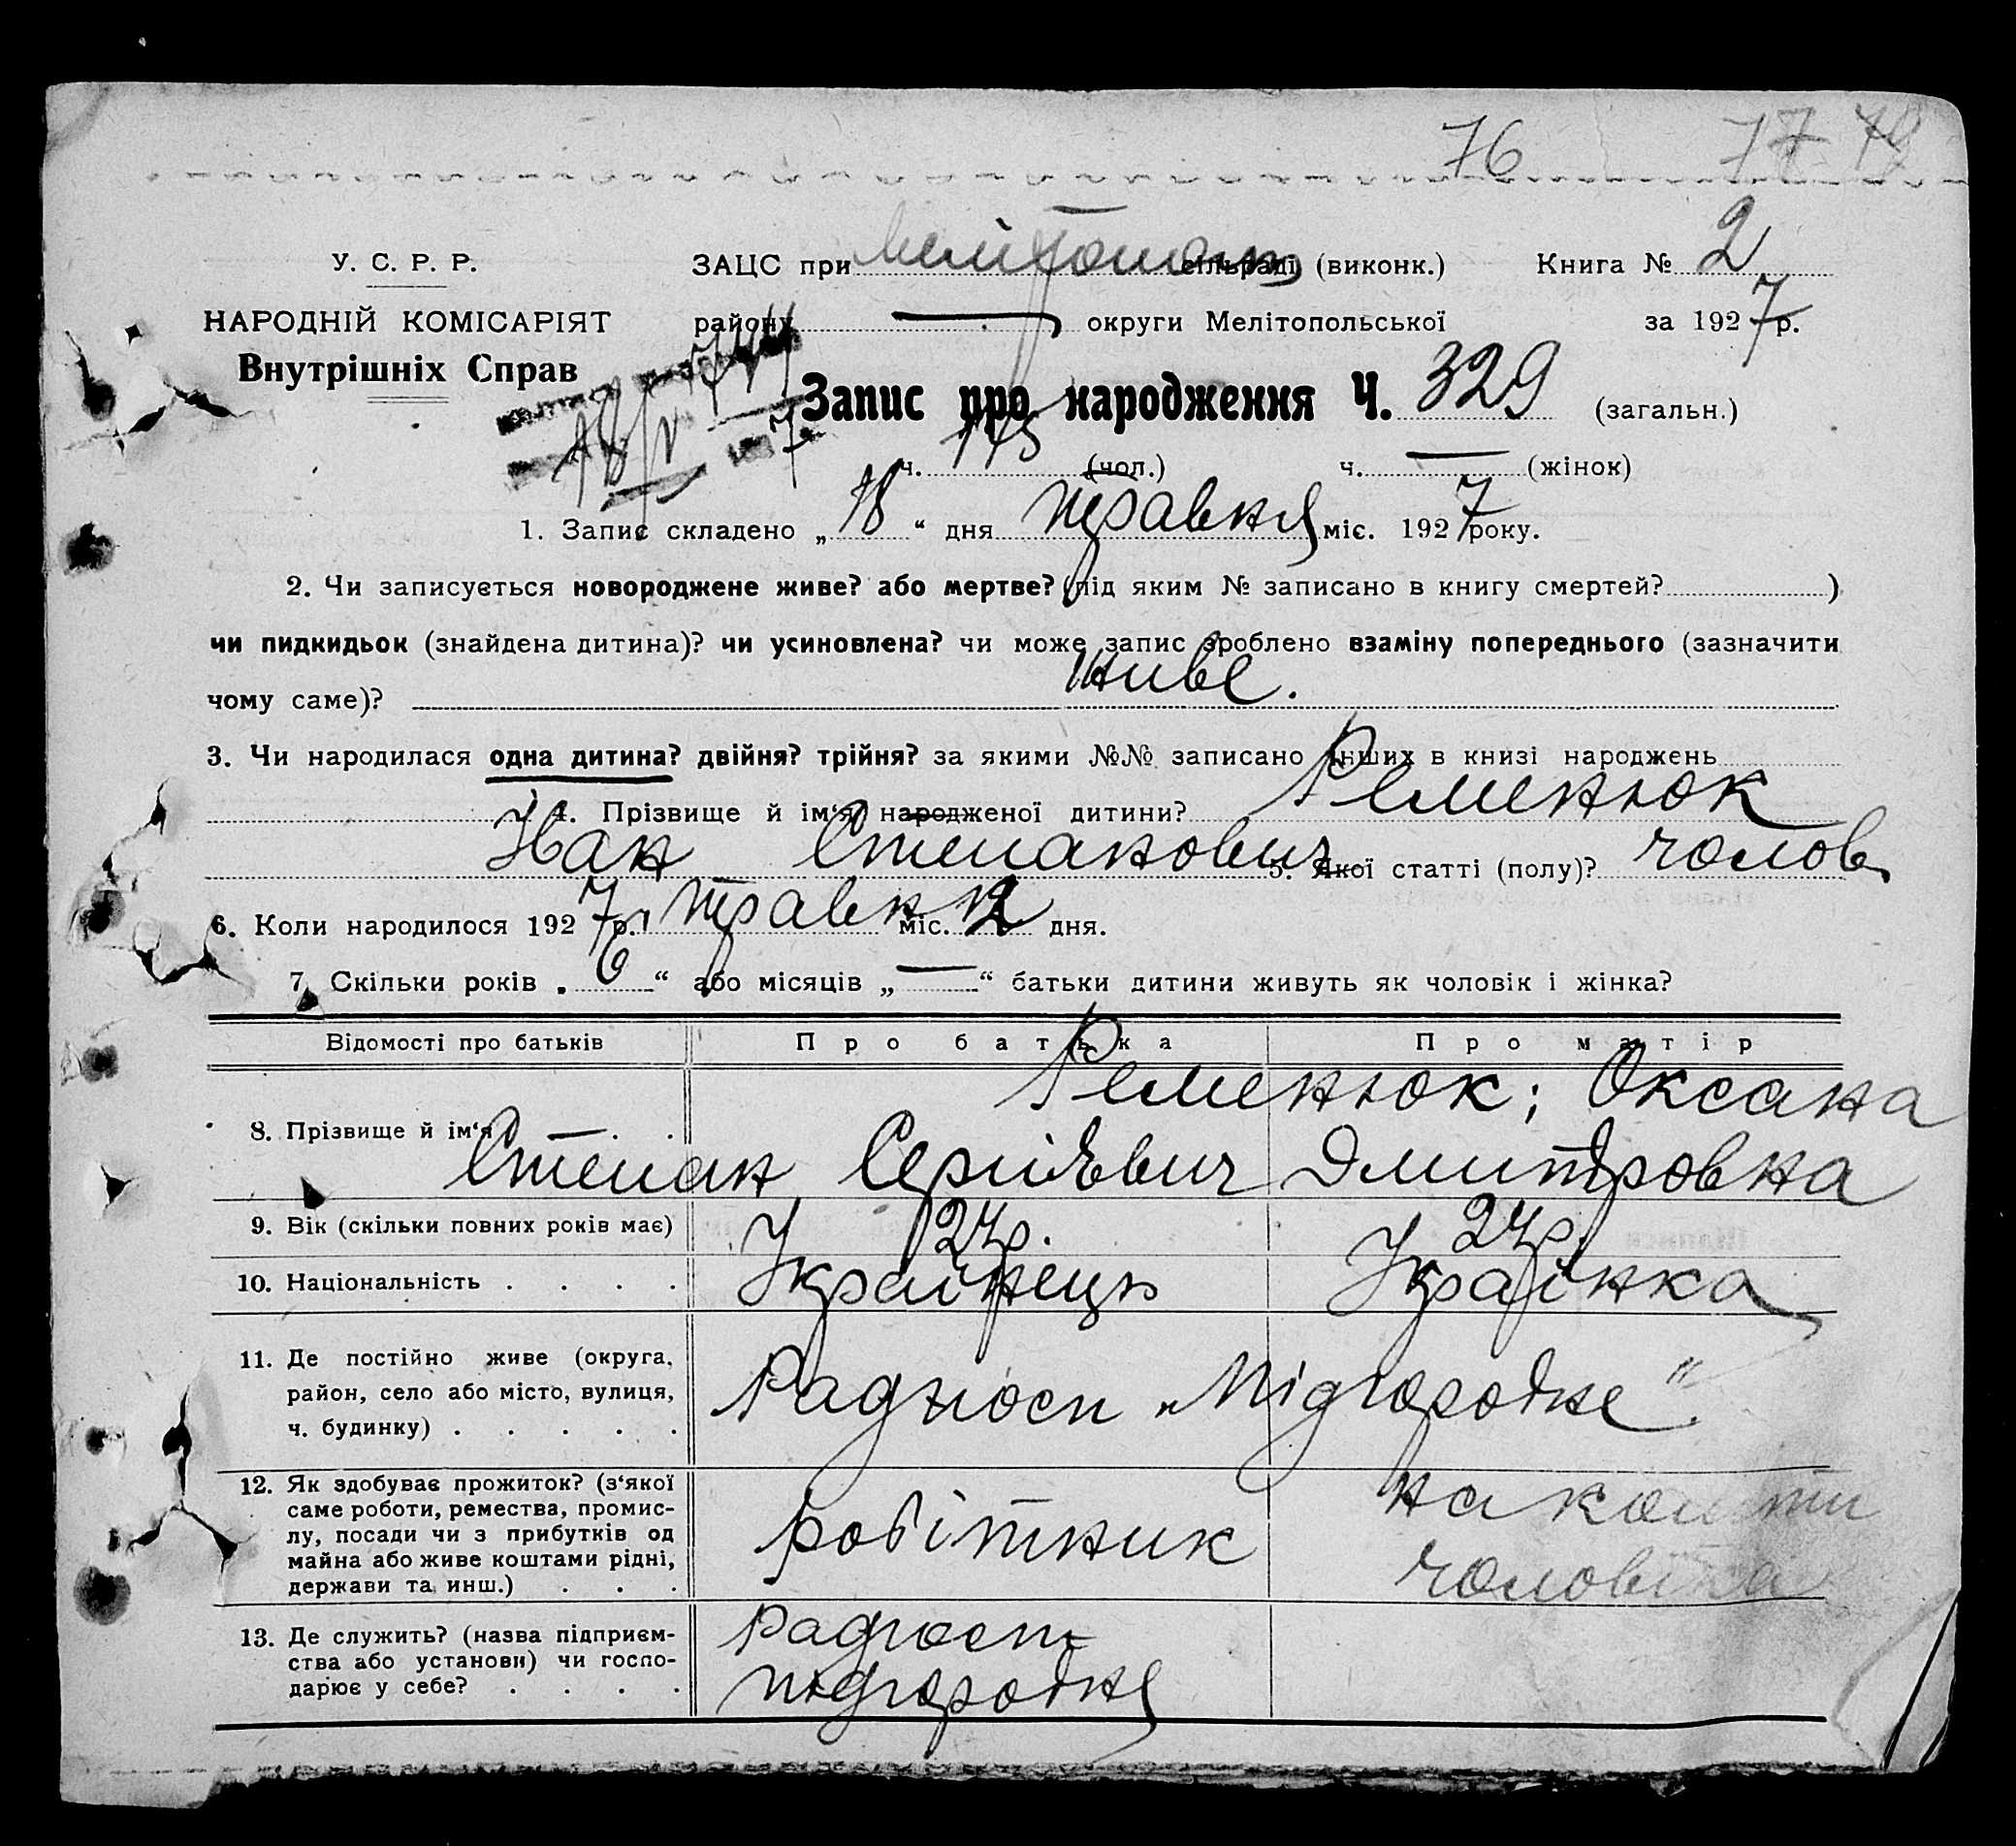 76 77 78
У. С. Р. Р.
НАРОДНІЙ КОМІСАРІЯТ
Внутрішніх Справ
ЗАЦС при сільраді (виконк.) Книга № 2
району — округи Мелітопольської за 1927 р.
18/V 7
Запис про народження Ч. 329 (загальн.)
ч. 175 (чол.) ч. — (жінок)
1. Запис складено „18“ дня травня міс. 1927 року.
2. Чи записується новороджене живе? або мертве? (під яким № записано в книгу смертей? )
чи пидкидьок (знайдена дитина)? чи усиновлена? чи може запис зроблено взаміну попереднього (зазначити
чому саме)? живе.
3. Чи народилася одна дитина? двійня? трійня? за якими №№ записано інших в книзі народжень
4. Прізвище й ім‘я народженої дитини? Ременюк
Іван Степанович 5. Якої статті (полу)? чолов
6. Коли народилося 1927 р. травня міс. 12 дня.
7. Скільки років „6“ або місяців „—“ батьки дитини живуть як чоловік і жінка?
Відомості про батьків Про батька Про матір
Ременюк; Оксана
8. Прізвище й ім‘я
Степан Сергієвич Дмитровна
9. Вік (скільки повних років має) 24р. 24р.
10. Національність . . . . Українець Українка
11. Де постійно живе (округа,
район, село або місто, вулиця,
ч. будинку) . . . . .
Радгосп „Підгородне“
12. Як здобуває прожиток? (з‘якої
саме роботи, ремества, промис-
лу, посади чи з прибутків од
майна або живе коштами рідні,
держави та инш.) . . .
робітник
на кошти
чоловіка
13. Де служить? (назва підприєм-
ства або установи) чи госпо-
дарює у себе? . . . .
радгосп
підгородня